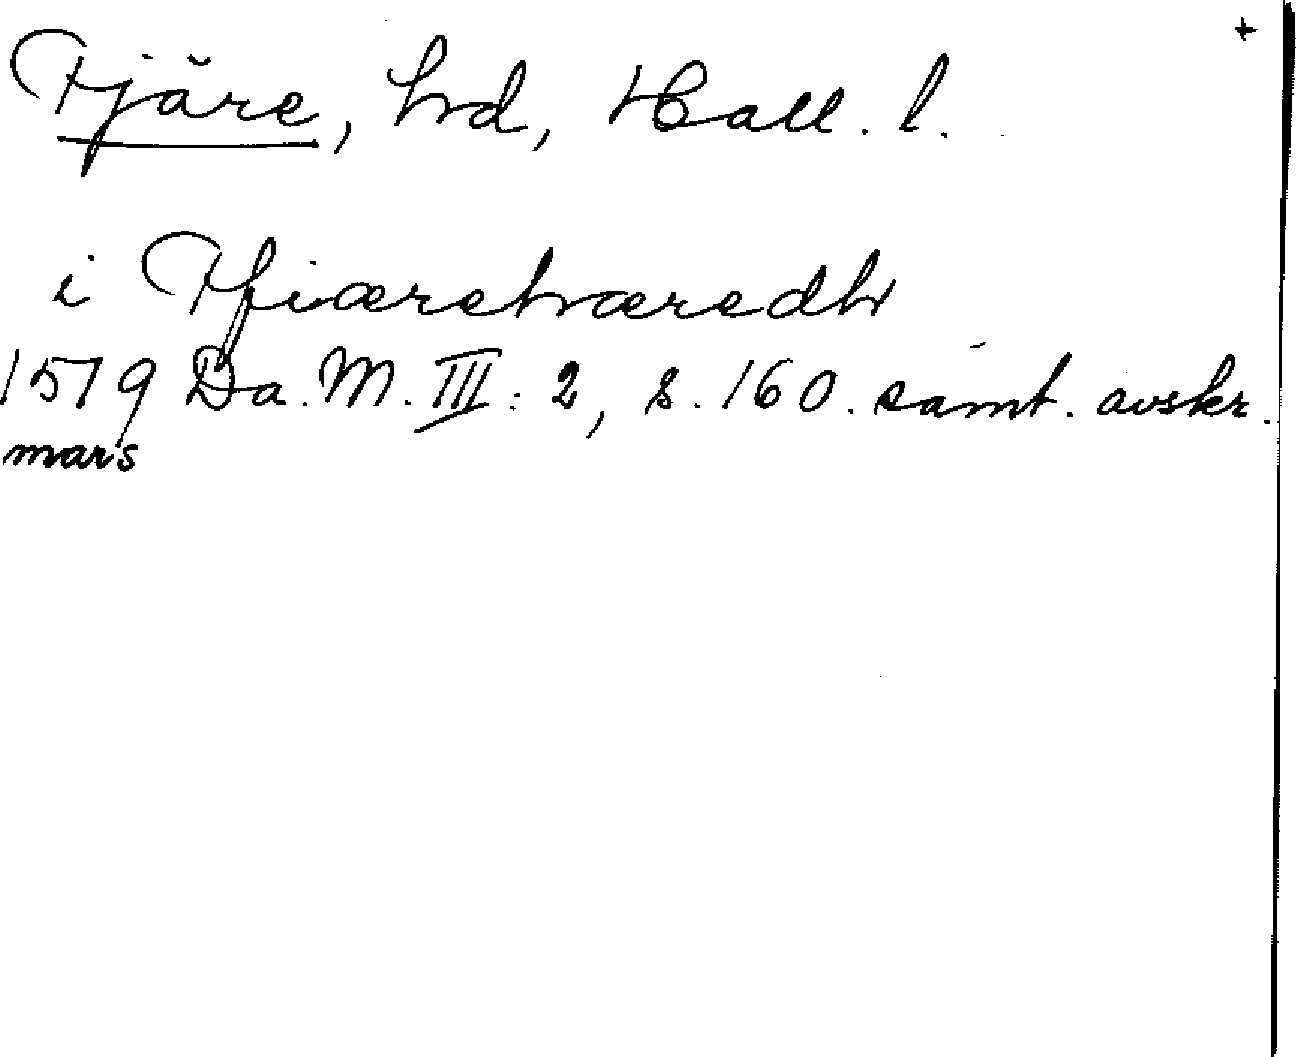 +
Fjäre, hd, Hall. l.
i Ffiærehæredh
1579 Da. M. III: 2, s. 160. samt. avskr.
mars